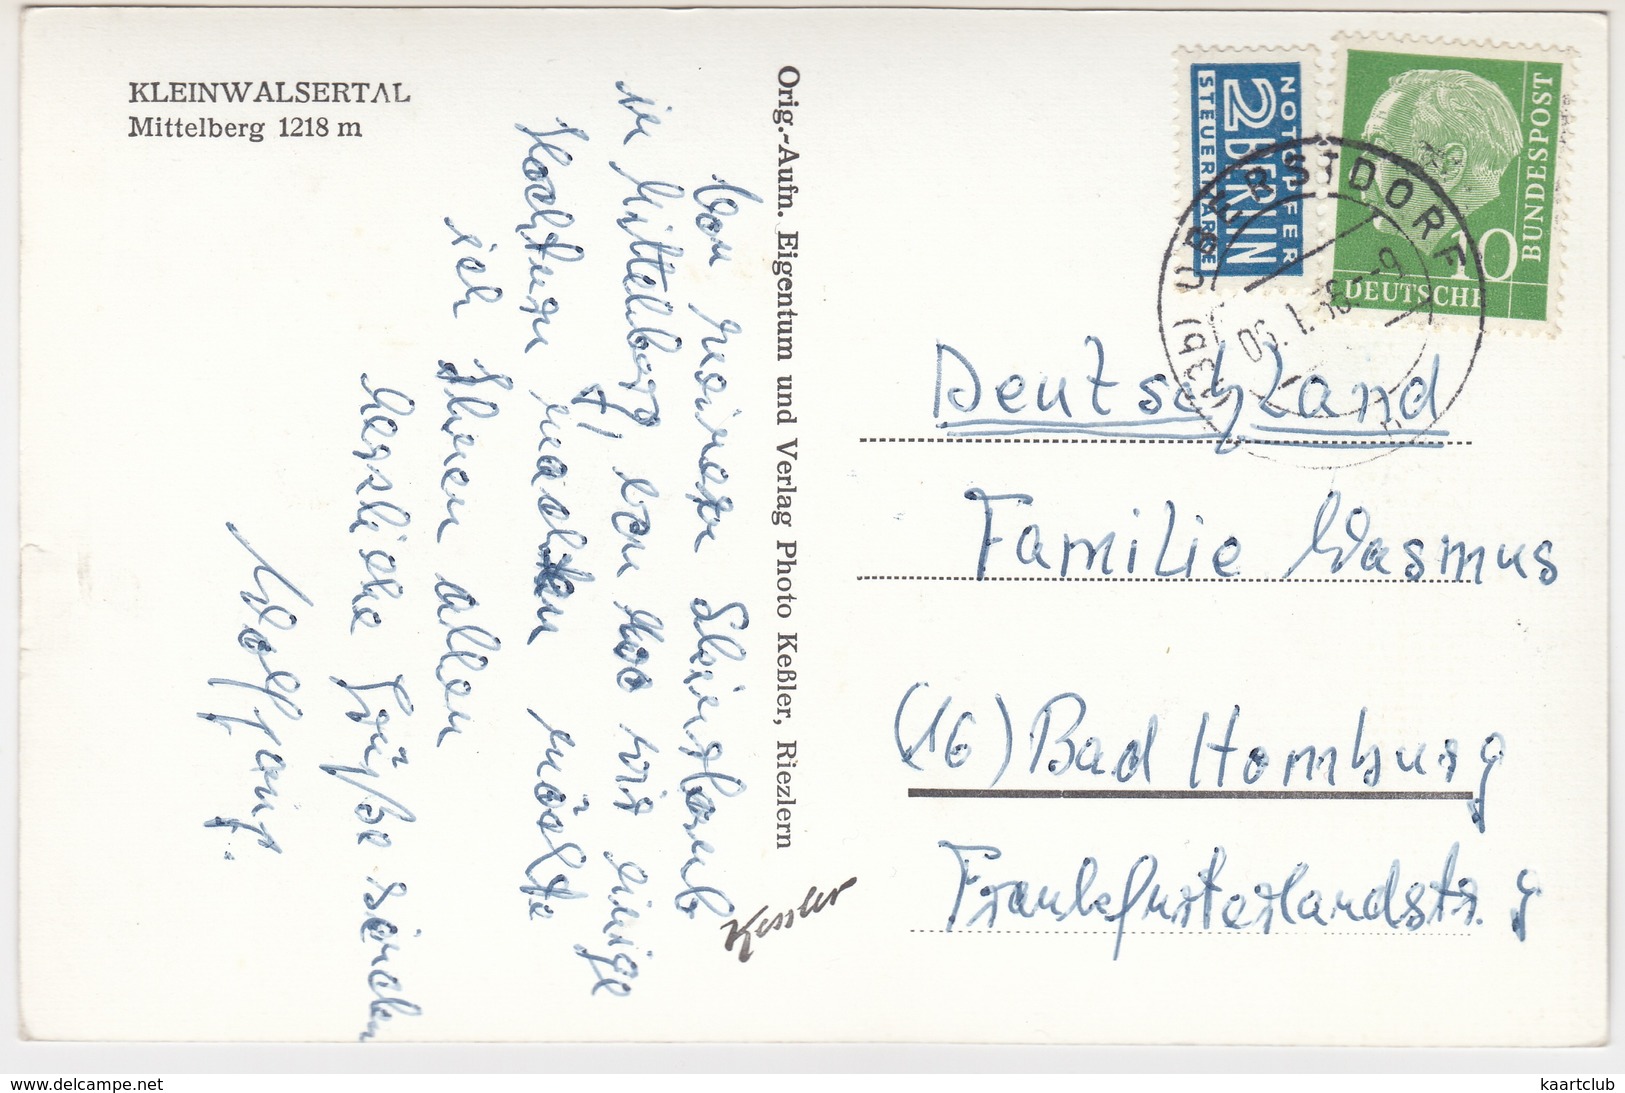 KLEINWALSERTAL
Mittelberg 1218 m
Von meinem Skiurlaub
in Mittelberg, von wo wir einige
Hochturen machten möchte
ich Ihnen allen
herzliche Grüße senden
Wolfgang.
Orig.-Aufn. Eigentum und Verlag Photo Keßler, Riezlern
Kessler
NOTOPFER
2 BERLIN
STEUERMARKE
DEUTSCHE
BUNDESPOST
10
OBERSTDORF
Deutschland
Familie Wasmus
(16) Bad Homburg
Frankfurterlandstr. 9
www.delcampe.net
kaartclub